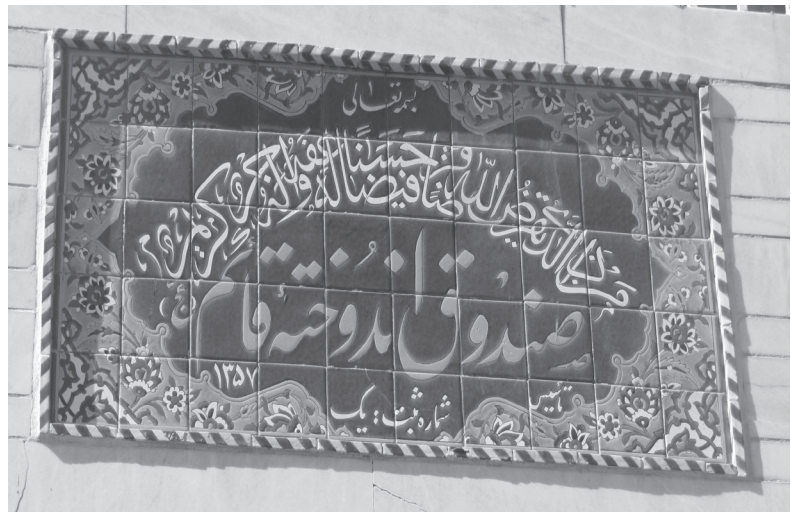 بسمه تعالی
من ذا الذی یقرض الله قرضاً حسناً فیضاعفه له و له اجر کریم
صندوق اندوخته قائم عج
تأسیس ۱۳۵۷
شماره ثبت: یک